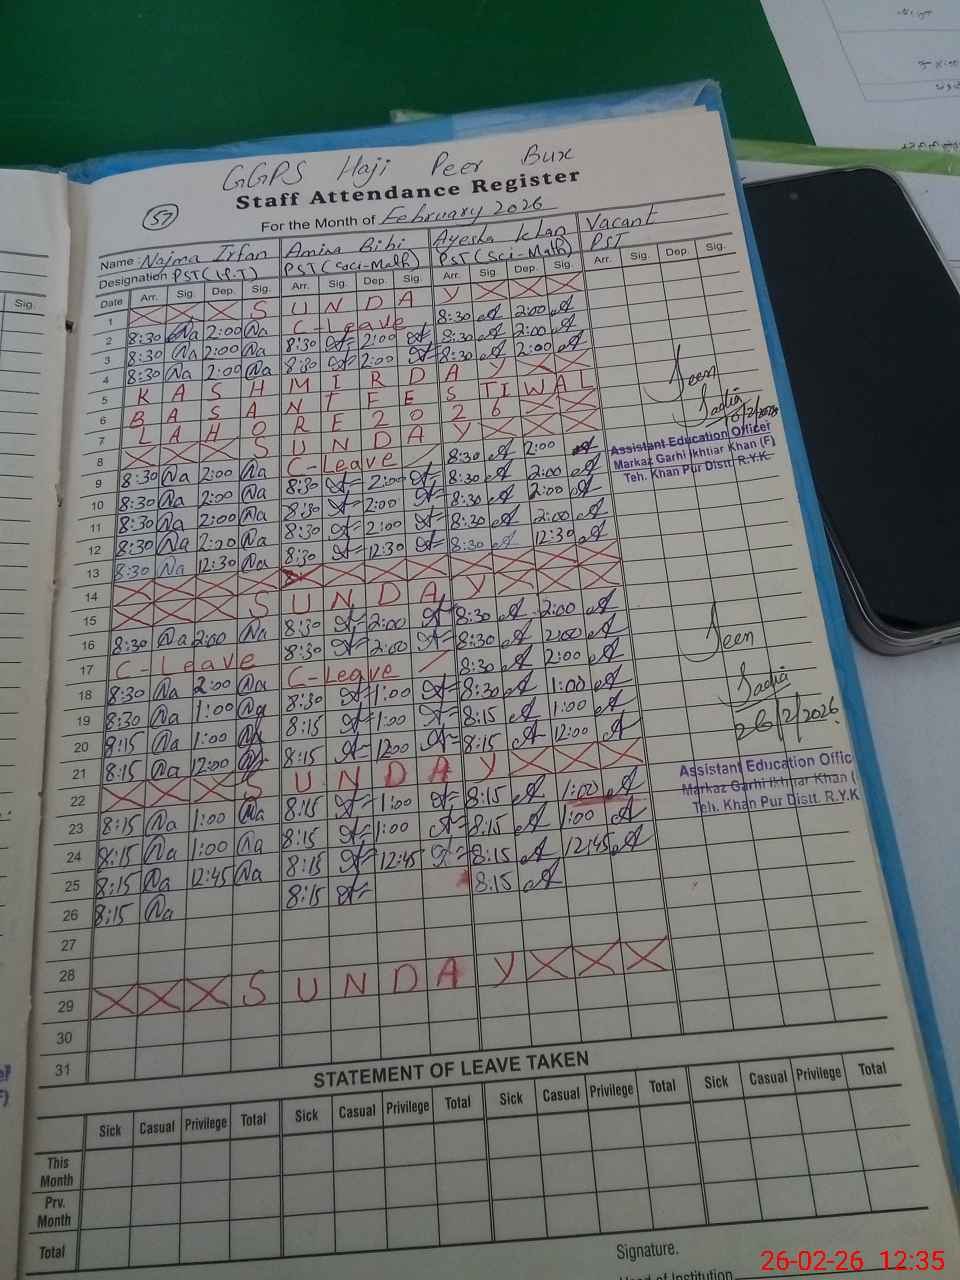 GGPS Haji Peer Bux
Staff Attendance Register
57
For the Month of February 2026
Name Najma Irfan Amina Bibi Ayesha Khan Vacant
Designation PST (I.P.T) PST (Sci-Math) PST (Sci-Math) PST
Date Arr. Sig. Dep. Sig. Arr. Sig. Dep. Sig. Arr. Sig. Dep. Sig. Arr. Sig. Dep. Sig.
1 S U N D A Y
2 8:30 Na 2:00 Na C-Leave 8:30 A 2:00 A
3 8:30 Na 2:00 Na 8:30 A 2:00 A 8:30 A 2:00 A
4 8:30 Na 2:00 Na 8:30 A 2:00 A 8:30 A 2:00 A
5 K A S H M I R D A Y
6 B A S A N T F E S TI W A L
7 L A H O R E 2 0 2 6
8 S U N D A Y
9 8:30 Na 2:00 Na C-Leave 8:30 A 2:00 A
10 8:30 Na 2:00 Na 8:30 A 2:00 A 8:30 A 2:00 A
11 8:30 Na 2:00 Na 8:30 A 2:00 A 8:30 A 2:00 A
12 8:30 Na 2:00 Na 8:30 A 2:00 A 8:30 A 2:00 A
13 8:30 Na 12:30 Na 8:30 A 12:30 A 8:30 A 12:30 A
14
15 S U N D A Y
16 8:30 Na 2:00 Na 8:30 A 2:00 A 8:30 A 2:00 A
17 C-Leave 8:30 A 2:00 A 8:30 A 2:00 A
18 8:30 Na 2:00 Na C-Leave 8:30 A 2:00 A
19 8:30 Na 1:00 Na 8:30 A 1:00 A 8:30 A 1:00 A
20 8:15 Na 1:00 Na 8:15 A 1:00 A 8:15 A 1:00 A
21 8:15 Na 12:00 Na 8:15 A 12:00 A 8:15 A 12:00 A
22 S U N D A Y
23 8:15 Na 1:00 Na 8:15 A 1:00 A 8:15 A 1:00 A
24 8:15 Na 1:00 Na 8:15 A 1:00 A 8:15 A 1:00 A
25 8:15 Na 12:45 Na 8:15 A 12:45 A 8:15 A 12:45 A
26 8:15 Na 8:15 A 8:15 A
27
28
29 S U N D A Y
30
31
Seen
Sadia
Assistant Education Officer
Markaz Garhi Ikhtiar Khan (F)
Teh. Khan Pur Distt. R.Y.K
Seen
Sadia
26/2/2026
Assistant Education Offic
Markaz Garhi Ikhtiar Khan (
Teh. Khan Pur Distt. R.Y.K
STATEMENT OF LEAVE TAKEN
Sick Casual Privilege Total Sick Casual Privilege Total Sick Casual Privilege Total Sick Casual Privilege Total
This Month
Prv. Month
Total
Signature.
Head of Institution
Sig.
26-02-26 12:35